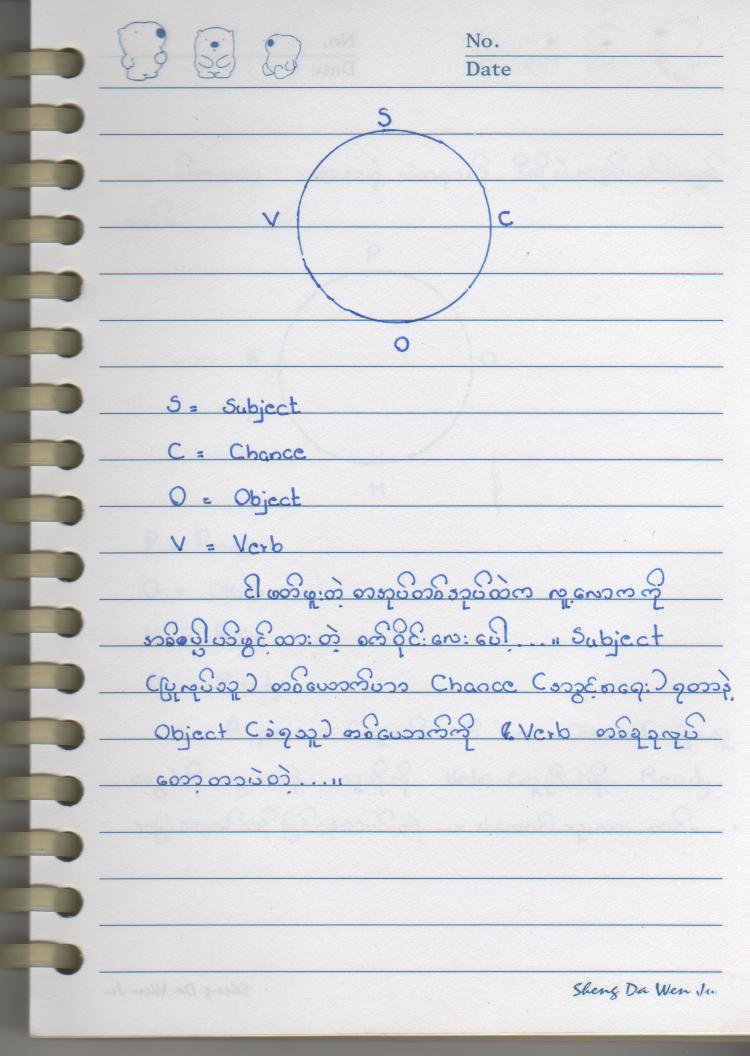 No.
Date
S
V C
O
S = Subject
C = Chance
O = Object
V = Verb
ငါဖတ်ဖူးတဲ့ စာအုပ်တစ်အုပ်ထဲက လူ့လောကကို
အဓိပ္ပါယ်ဖွင့်ထားတဲ့ စက်ဝိုင်းလေးပေါ့....။ Subject
(ပြုလုပ်သူ) တစ်ယောက်ဟာ Chance (အခွင့်အရေး) ရတာနဲ့
Object (ခံရသူ) တစ်ယောက်ကို Verb တစ်ခုခုလုပ်
တော့တာပဲတဲ့....။
Sheng Da Wen Ju